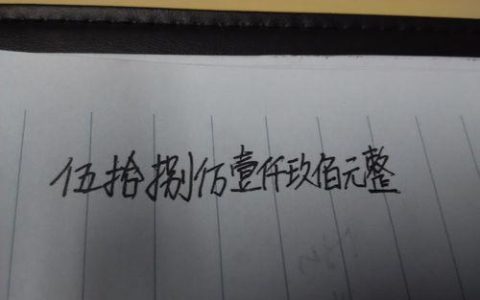 伍拾捌万壹仟玖佰元整